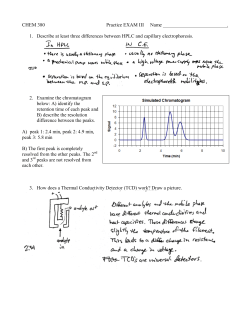 CHEM 300 Practice EXAM III Name
1. Describe at least three differences between HPLC and capillary electrophoresis.
In HPLC W C.E.
• there is usually a stationary phase • usually no stationary phase
• a mechanical pump moves mobile phase • a high voltage power supply moves the
mobile phase
• separation is based on the equilibrium
between the m.p. and s.p.
• separation is based on the
electrophoretic mobilities
2. Examine the chromatogram
below: A) identify the
retention time of each peak and
B) describe the resolution
difference between the peaks.
A) peak 1: 2.4 min, peak 2: 4.9 min,
peak 3: 5.8 min
B) The first peak is completely
resolved from the other peaks. The 2nd
and 3rd peaks are not resolved from
each other.
Simulated Chromatogram
Signal
12
10
8
6
4
2
0
0 2 4 6 8 10
Time (min)
3. How does a Thermal Conductivity Detector (TCD) work? Draw a picture.
analyte out
analyte
in
Different analytes and the mobile phase
have different thermal conductivities and
heat capacities. These differences change
slightly the temperature of the filament.
This leads to a change in resistance
and a change in voltage.
TCDs are universal detectors.